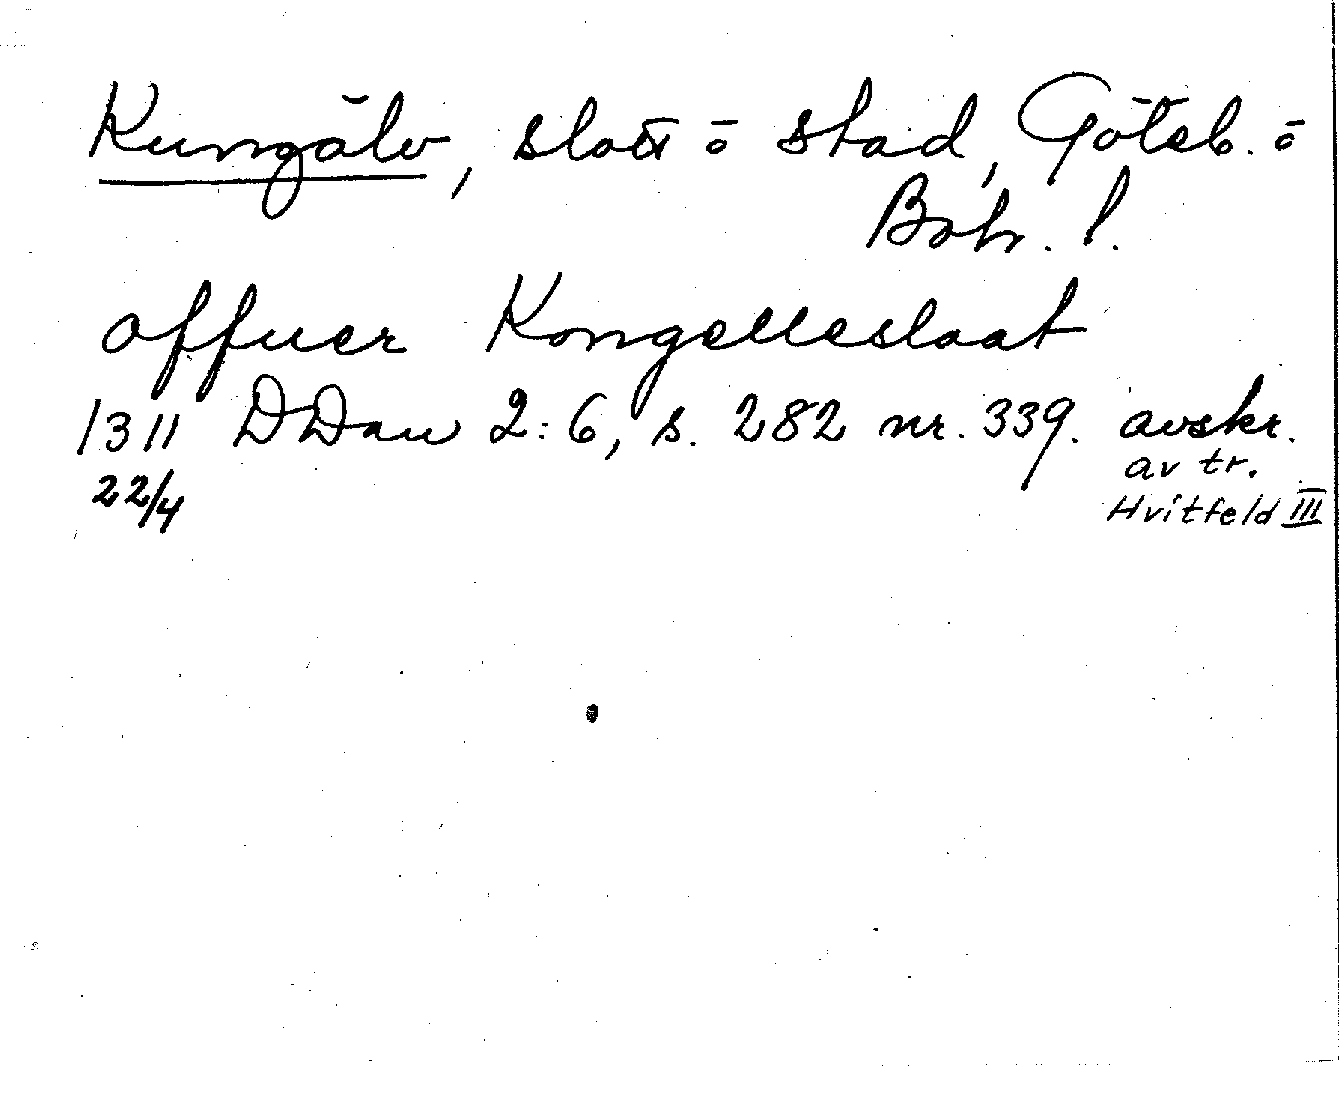 Kungälv, slott o stad, Göteb. o
Boh. l.
offuer Kongelleslaat
1311 DDan 2:6, s. 282 nr. 339. avskr.
22/4
av tr.
Hvitfeld III